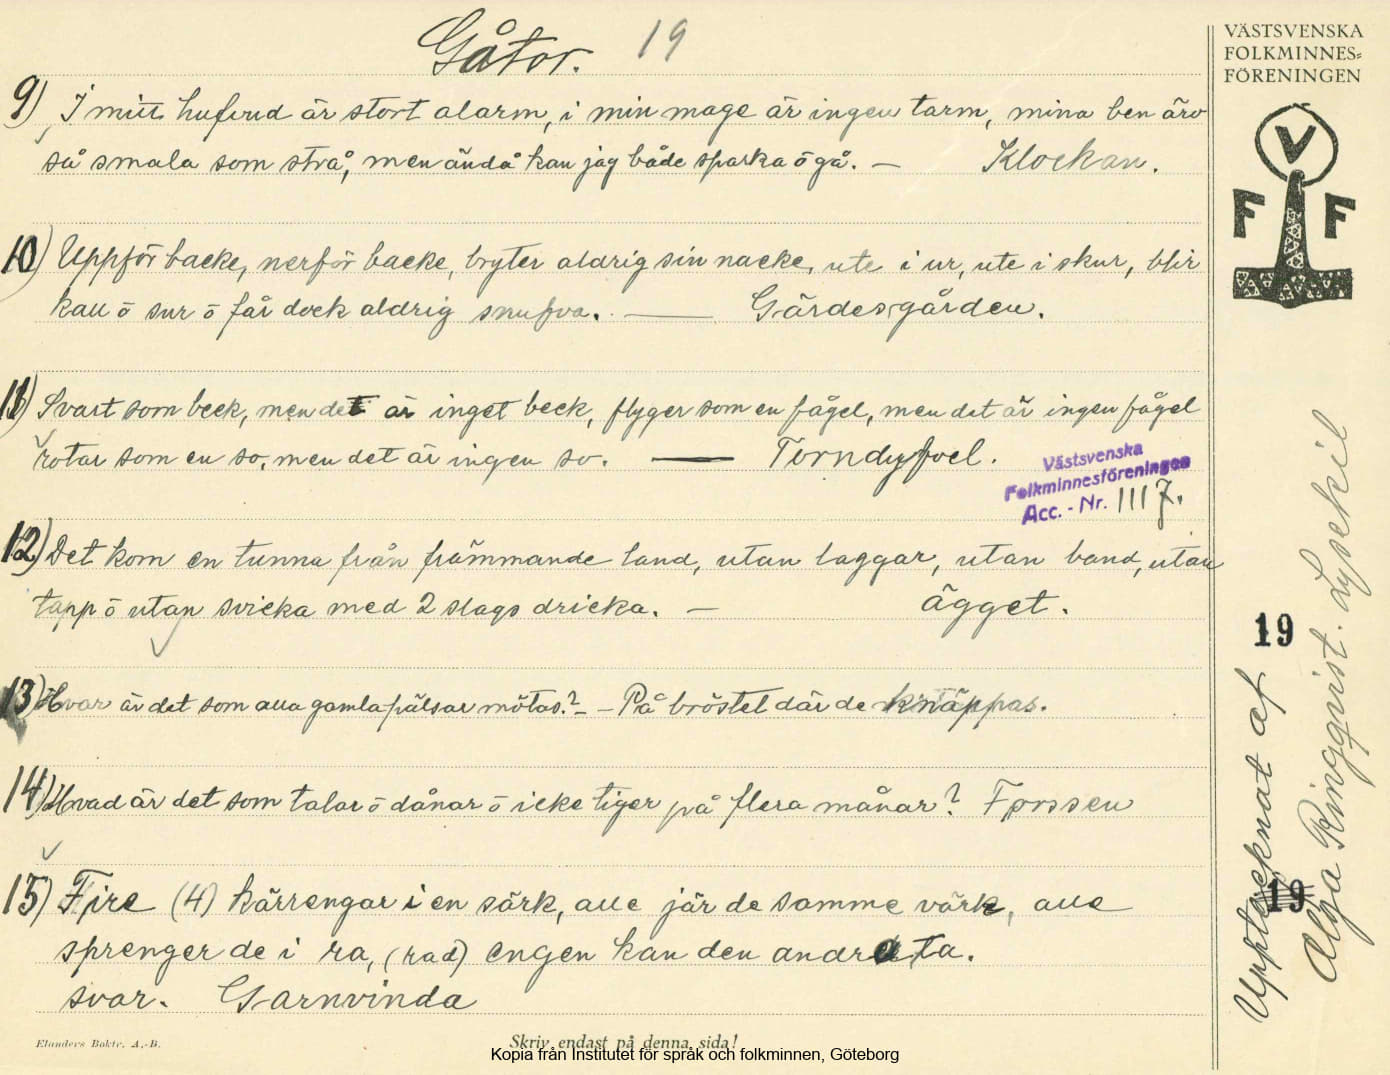 Gåtor. 19
9) I mitt hufvud är stort alarm, i min mage är ingen tarm, mina ben äro
så smala som strå, men ändå kan jag både sparka ö gå. — Klockan.
10) Uppför backe, nerför backe, bryter aldrig sin nacke, ute i ur, ute i skur, blir
kall ö sur ö får dock aldrig snufva. — Gärdesgården.
11) Svart som beck, men det är inget beck, flyger som en fågel, men det är ingen fågel
rotar som en so, men det är ingen so. — Torndyfvel.
Västsvenska
Folkminnesföreningen
Acc. - Nr. 1117.
12) Det kom en tunna från främmande land, utan laggar, utan band, utan
tapp ö utan svicka med 2 slags dricka. — ägget.
13) Hvar är det som alla gamla pälsar mötas? — På bröstet där de knäppas.
14) Hvad är det som talar ö dånar ö icke tiger på flera månar? Forssen
15) Fire (4) kärrengar i en särk, alle jär de samme värk, alle
sprenger de i ra, (rad) engen kan den andra ta.
svar. Garnvinda
Elanders Boktr. A.-B.
Skriv endast på denna sida!
Kopia från Institutet för språk och folkminnen, Göteborg
VÄSTSVENSKA
FOLKMINNES-
FÖRENINGEN
V
F F
19
19
Upptecknat af
Olga Ringqvist. Lysekil